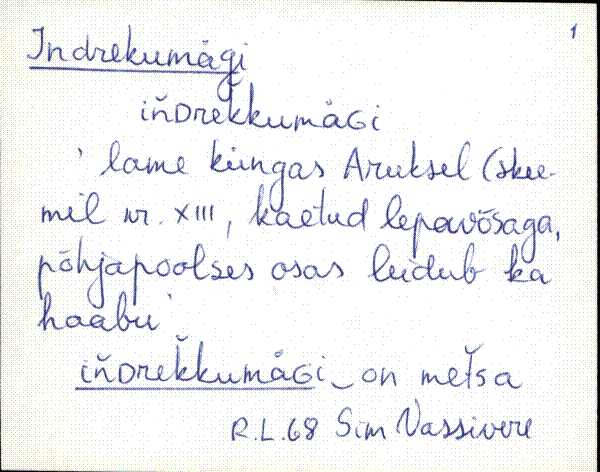 1
Indrekumägi
iňDrek̆kumåGi
' lame küngas Aruksel (skee-
mil nr. XIII, kaetud lepavõsaga,
põhjapoolses osas leidub ka
haabu'
iňDrek̆kumåGi‿on met̆sa
R.L.68 Sim Vassivere